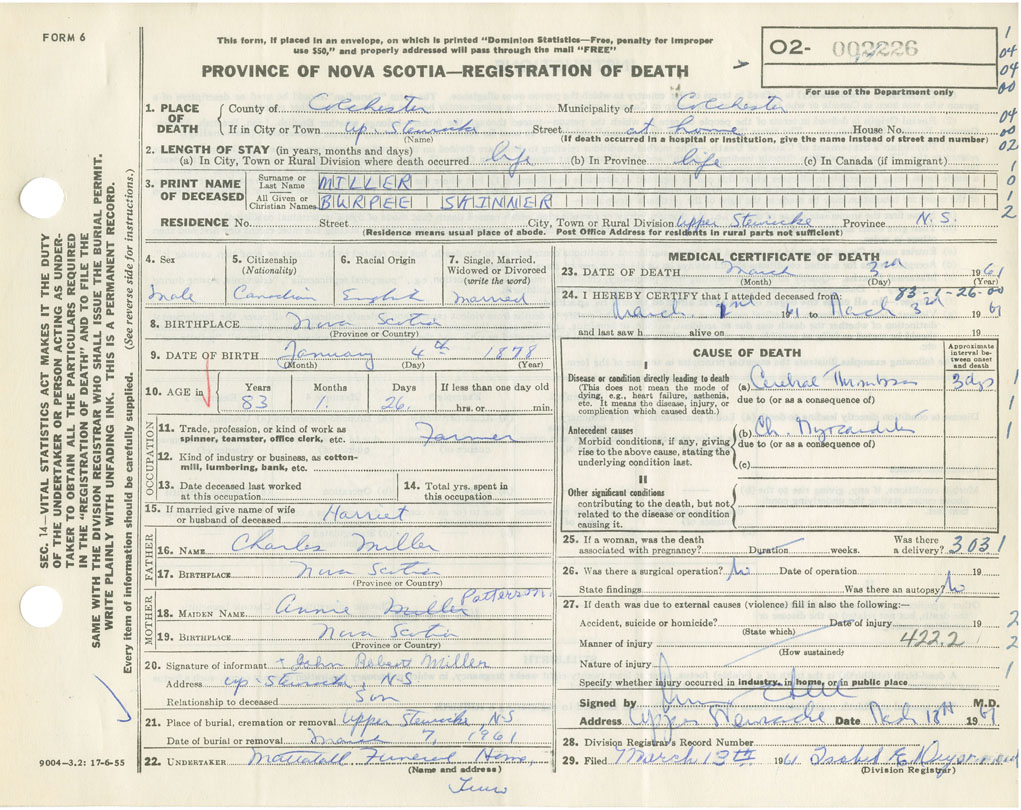 FORM 6
This form, if placed in an envelope, on which is printed "Dominion Statistics—Free, penalty for improper
use $50," and properly addressed will pass through the mail "FREE"
PROVINCE OF NOVA SCOTIA—REGISTRATION OF DEATH
02- 002226
For use of the Department only
1
04
04
00
04
00
02
1
0
1
2
1. PLACE OF DEATH
County of Colchester Municipality of Colchester
If in City or Town Up. Stewiacke Street at home House No.
(Name) (If death occurred in a hospital or institution, give the name instead of street and number)
2. LENGTH OF STAY (in years, months and days)
(a) In City, Town or Rural Division where death occurred life (b) In Province life (c) In Canada (if immigrant)
3. PRINT NAME OF DECEASED
Surname or Last Name MILLER
All Given or Christian Names BURPEE SKINNER
RESIDENCE No. Street City, Town or Rural Division Upper Stewiacke Province N.S.
(Residence means usual place of abode. Post Office Address for residents in rural parts not sufficient)
4. Sex
Male
5. Citizenship
(Nationality)
Canadian
6. Racial Origin
English
7. Single, Married, Widowed or Divorced
(write the word)
Married
8. BIRTHPLACE Nova Scotia
(Province or Country)
9. DATE OF BIRTH January 4th 1878
(Month) (Day) (Year)
10. AGE in Years 83 Months 1. Days 26. If less than one day old hrs. or min.
OCCUPATION
11. Trade, profession, or kind of work as
spinner, teamster, office clerk, etc. Farmer
12. Kind of industry or business, as cotton-
mill, lumbering, bank, etc.
13. Date deceased last worked
at this occupation
14. Total yrs. spent in
this occupation
15. If married give name of wife
or husband of deceased Harriet
FATHER
16. NAME Charles Miller
17. BIRTHPLACE Nova Scotia
(Province or Country)
MOTHER
18. MAIDEN NAME Annie Miller Patterson.
19. BIRTHPLACE Nova Scotia
(Province or Country)
20. Signature of informant + John Robert Miller
Address Up. Stewiacke, N.S
Relationship to deceased Son
21. Place of burial, cremation or removal Upper Stewiacke, N.S
Date of burial or removal March 7, 1961
22. UNDERTAKER Mattatall Funeral Home,
(Name and address)
Truro
MEDICAL CERTIFICATE OF DEATH
23. DATE OF DEATH March 3rd 1961
(Month) (Day) (Year)
83-1-26-00
24. I HEREBY CERTIFY that I attended deceased from:
March 2nd 1961 to March 3rd 1961
and last saw h alive on 19
CAUSE OF DEATH
Approximate interval be-tween onset and death
I
Disease or condition directly leading to death
(This does not mean the mode of
dying, e.g., heart failure, asthenia,
etc. It means the disease, injury, or
complication which caused death.)
(a) Cerebral Thrombosis 3 dys 1
due to (or as a consequence of)
Antecedent causes
Morbid conditions, if any, giving
rise to the above cause, stating the
underlying condition last.
(b) Ch. Myocarditis 1
due to (or as a consequence of)
(c)
II
Other significant conditions
contributing to the death, but not
related to the disease or condition
causing it.
25. If a woman, was the death
associated with pregnancy? Duration weeks. Was there
a delivery? 3031
26. Was there a surgical operation? No Date of operation 19
State findings Was there an autopsy? No
27. If death was due to external causes (violence) fill in also the following:—
Accident, suicide or homicide? Date of injury 19 2
(State which)
Manner of injury 422.2 2
(How sustained)
Nature of injury
Specify whether injury occurred in industry, in home, or in public place 1
Signed by M.D.
Address Upper Stewiacke Date March 13th 1961
28. Division Registrar's Record Number
29. Filed March 13th 1961 Isabel E
(Division Registrar)
SEC. 14—VITAL STATISTICS ACT MAKES IT THE DUTY
OF THE UNDERTAKER OR PERSON ACTING AS UNDER-
TAKER TO OBTAIN ALL THE PARTICULARS REQUIRED
IN THE "REGISTRATION OF DEATH" AND TO FILE THE
SAME WITH THE DIVISION REGISTRAR WHO SHALL ISSUE THE BURIAL PERMIT.
WRITE PLAINLY WITH UNFADING INK. THIS IS A PERMANENT RECORD.
Every item of information should be carefully supplied. (See reverse side for instructions.)
9004-3.2: 17-6-55